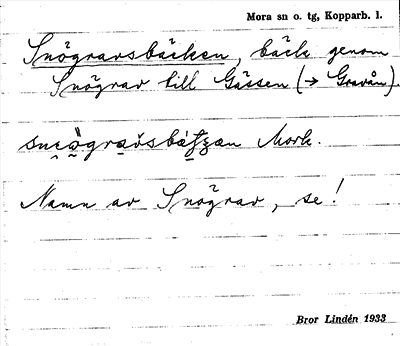 Mora sn o. tg, Kopparb. l.
Snögravsbäcken, bäck genom
Snögrav till Gässen (→ Gravån).
Mork.
Namn av Snögrav, se!
Bror Lindén 1933